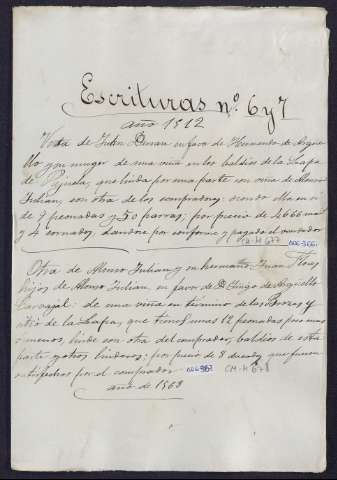 Escrituras nº. 6 y 7
año 1512
Venta de Julian Duran en favor de Hernando de Argue
llo y su muger de una viña en los baldíos de la Zafra
de que linda por una parte con viña de Alonso
Julian, con otra de los compradores, siendo esta viña
de 9 peonadas y 50 parras; por precio de 4666 mrs
y 4 cornados, dandose por conforme y pagado el vendedor
CM-H 677
Otra de Alonso Julian y su hermano Juan Flores
hijos de Alonso Julian en favor de Dº Diego de Arguello
Carvajal: de una viña en término de las Brozas y
sitio de la Zafra, que tiene unas 12 peonadas poco mas
o menos, linde con otra del comprador, baldíos de esta
parte y otros linderos: por precio de 8 ducados, que fueron
satisfechos por el comprador
CM-H 678
año de 1568